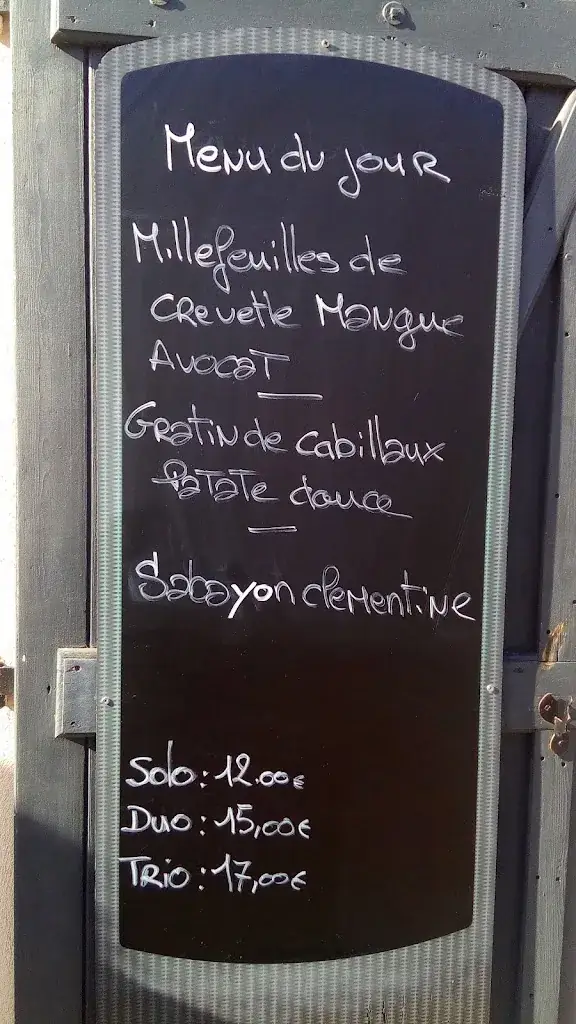 Menu du jour
Millefeuilles de
crevette Mangue
Avocat
Gratin de cabillaux
Patate douce
Sabayon clementine
Solo : 12.00€
Duo : 15,00€
Trio : 17,00€